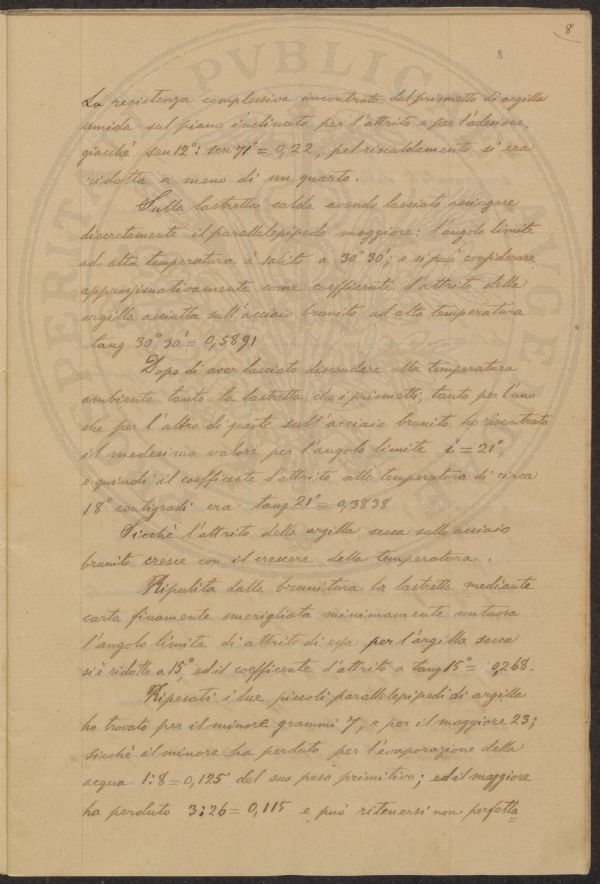 8
8
La resistenza complessiva incontrata dal prismetto di argilla
umida sul piano inclinato per l'attrito e per l'adesione,
giacchè sen 12°: sen 71° = 0,22, pel riscaldamento si era
ridotta a meno di un quarto.
Sulla lastretta calda avendo lasciato asciugare
discretamente il parallelepipedo maggiore: l'angolo limite
ad alta temperatura è salito a 30° 30'; e si può considerare
approssimativamente come coefficente d'attrito della
argilla asciutta sull'acciaio brunito ad alta temperatura
tang 30° 30' = 0,5891
Dopo di aver lasciato discendere alla temperatura
ambiente tanto la lastretta che i prismetti, tanto per l'uno
che per l'altro di questi sull'acciaio brunito ho riscontrato
il medesimo valore per l'angolo limite i = 21°,
e quindi il coefficente d'attrito alla temperatura di circa
18° centigradi era tang 21° = 0,3838
Sicchè l'attrito della argilla secca sullo acciaio
brunito cresce con il crescere della temperatura.
Ripulita dalla brunitura la lastretta mediante
carta finamente smerigliata minimamente untuosa
l'angolo limite di attrito di essa per l'argilla secca
si è ridotto a 15°, ed il coefficente d'attrito a tang 15° = 0,268.
Ripesati i due piccoli parallelepipedi di argilla
ho trovato per il minore grammi 7, e per il maggiore 23;
sicchè il minore ha perduto per l'evaporazione della
acqua 1:8 = 0,125 del suo peso primitivo; ed il maggiore
ha perduto 3:26 = 0,115 e può ritenersi non perfetta